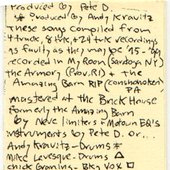 Produced by Pete D.
* Produced by Andy Kravitz
These songs compiled from
4 track, 8 trk, + 24 trk recordings
as faulty as they may be '95 -
recorded in My Room (Sardogs NY)
the Armory (Prov. RI) + the
Amazing Barn RIP (Conshohocken PA
mastered at the Brick House
formerly the Amazing Barn
by Neve limiters + Midtown EQ's
instruments by Pete D. or...
Andy Kravitz - Drums *
Mike Levesque - Drums △
Chick Graning - Bks Vox □